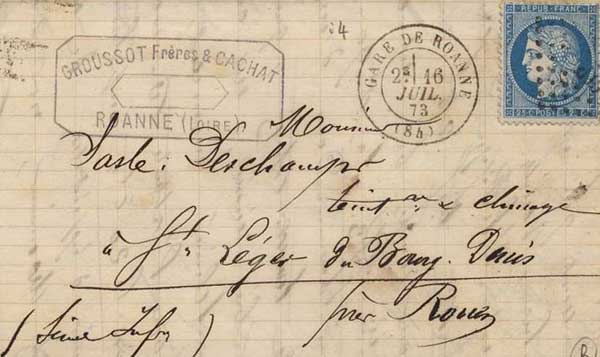 GROUSSOT Frères & CACHAT
ROANNE (LOIRE)
GARE DE ROANNE
2E 16
JUIL.
73
(84)
REPUB. FRANC.
25 C. POSTES 25 C.
Monsieur
Deschamps
teint
à St Léger du Bourg Denis
près Rouen
(Seine Infre)